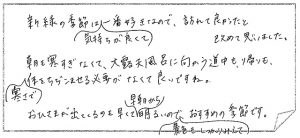 新緑の季節は一番好きなので、訪れて良かったと
気持ちが良くて
改めて思いました。
朝も寒すぎなくて、大露天風呂に向かう道中も帰りも、
体をちぢこませる必要がなくて良いですね。
寒さで
早朝から
おひさまが出てくるのも早くて明るいので、おすすめの季節です。
景色もしっかりみえて